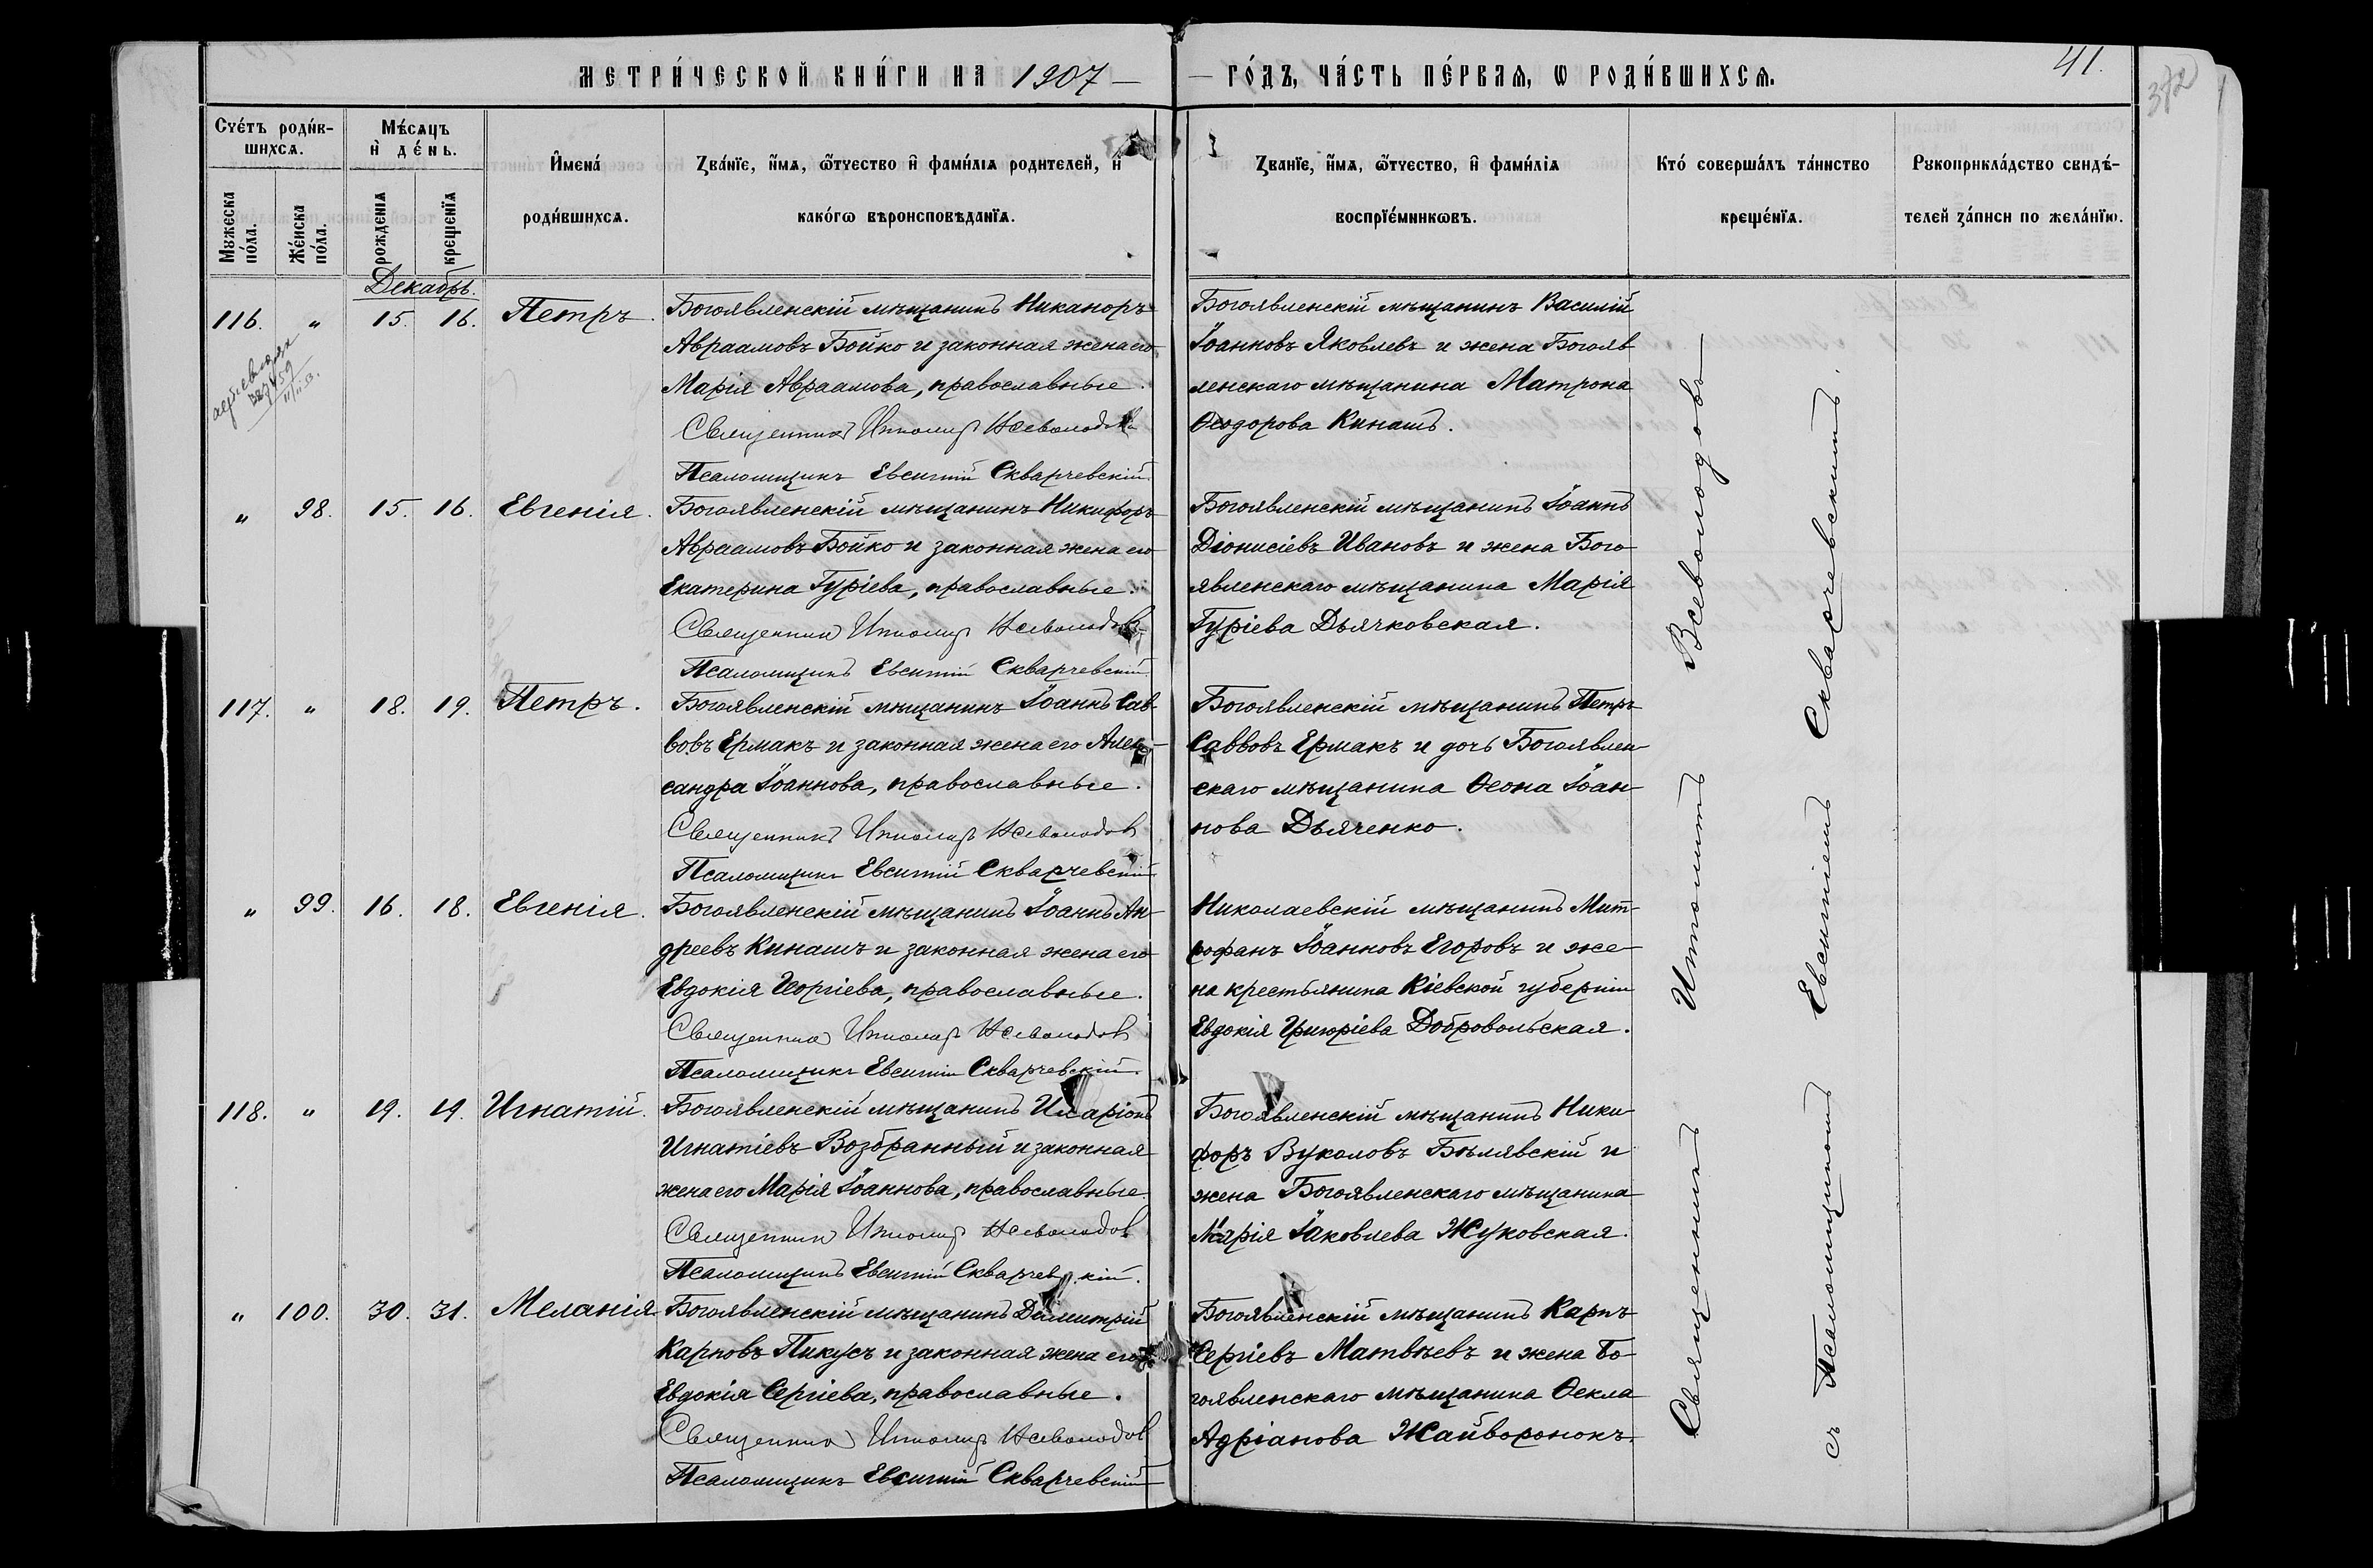 МЕТРИ́ЧЕСКОЙ КНИ́ГИ НА 1907 — ГО́ДЪ, ЧА́СТЬ ПЕ́РВАѦ, Ѡ РОДИ́ВШИХСѦ.
41.
372
Счéтъ роди́в-
шихсѧ.
Мужеска
по́ла.
Же́нска
по́ла.
Мѣ́сѧцъ
и҆ де́нь.
рожденїѧ
крещенїѧ
И҆мена́
роди́вшихсѧ.
Зва́нїе, и҆́мѧ, ѻ҆́тчество и҆ фами́лїѧ родителей, и҆
како́гѡ вѣроисповѣданїѧ.
Званїе, и҆́мѧ, ѻ҆́тчество, и҆ фами́лїѧ
воспрїе́мникѡвъ.
Кто́ соверша́лъ та́инство
креще́нїѧ.
Рукоприкла́дство свидѣ́-
телей за́писи по жела́нїю.
Декабрь.
116. " 15. 16. Петръ.
Богоявленскій мѣщанинъ Никаноръ
Авраамовъ Бойко и законная жена его
Марія Авраамова, православные.
Священникъ Всеволодовъ
Псаломщикъ Евсигній Скварчевскій.
Богоявленскій мѣщанинъ Василій
Іоанновъ Яковлевъ и жена Богояв
ленскаго мѣщанина Матрона
Ѳеодорова Кинашъ.
" 98. 15. 16. Евгенія.
Богоявленскій мѣщанинъ Никифоръ
Авраамовъ Бойко и законная жена его
Екатерина Гуріева, православные.
Священникъ Всеволодовъ
Псаломщикъ Евсигній Скварчевскій
Богоявленскій мѣщанинъ Іоаннъ
Діонисіевъ Ивановъ и жена Бого
явленскаго мѣщанина Марія
Гуріева Дьячковская.
117. " 18. 19. Петръ.
Богоявленскій мѣщанинъ Іоаннъ Сав-
вовъ Ермакъ и законная жена его Алек-
сандра Іоаннова, православные.
Священникъ Всеволодовъ
Псаломщикъ Евсигній Скварчевскій
Богоявленскій мѣщанинъ Петръ
Саввовъ Ермакъ и дочь Богоявлен-
скаго мѣщанина Ѳеона Іоан-
нова Дьяченко.
" 99. 16. 18. Евгенія.
Богоявленскій мѣщанинъ Іоаннъ Ан-
дреевъ Кинашъ и законная жена его
Евдокія Георгіева, православные.
Священникъ Всеволодовъ
Псаломщикъ Евсигній Скварчевскій.
Николаевскій мѣщанинъ Мит-
рофанъ Іоанновъ Егоровъ и же-
на крестьянина Кіевской губерніи
Евдокія Григоріева Добровольская.
118. " 19. 19. Игнатій.
Богоявленскій мѣщанинъ Иларіонъ
Игнатіевъ Возбранный и законная
жена его Марія Іоаннова, православные.
Священникъ Всеволодовъ
Псаломщикъ Евсигній Скварчевскій.
Богоявленскій мѣщанинъ Ники-
форъ Вуколовъ Бѣлявскій и
жена Богоявленскаго мѣщанина
Марія Іаковлева Жуковская.
" 100. 30. 31. Меланія
Богоявленскій мѣщанинъ Димитрій
Карповъ Пикусъ и законная жена его
Евдокія Сергіева, православные.
Священникъ Всеволодовъ
Псаломщикъ Евсигній Скварчевскій
Богоявленскій мѣщанинъ Карпъ
Сергіевъ Матвѣевъ и жена Бо
гоявленскаго мѣщанина Ѳекла
Адріанова Жайворонокъ.
Священникъ Всеволодовъ
съ Псаломщикомъ Евсигніемъ Скварчевскимъ.